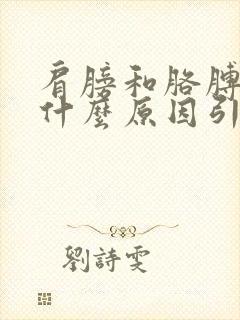 肩膀和胳膊
什麼原因引
劉詩雯